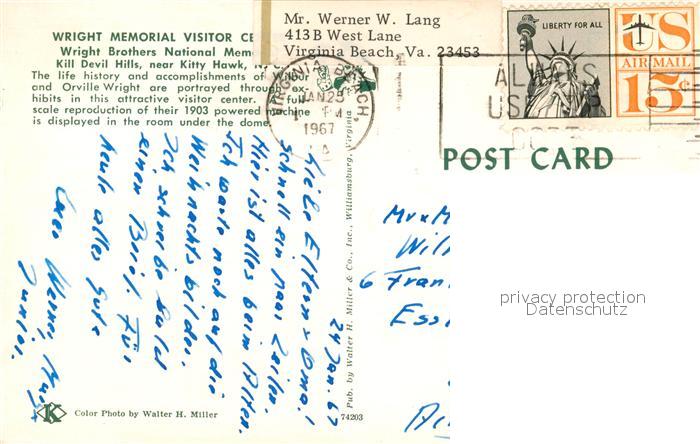 WRIGHT MEMORIAL VISITOR CE
Wright Brothers National Mem
Kill Devil Hills, near Kitty Hawk, N. C.
The life history and accomplishments of Wilbur
and Orville Wright are portrayed through ex-
hibits in this attractive visitor center. A full
scale reproduction of their 1903 powered machine
is displayed in the room under the dome.
Mr. Werner W. Lang
413B West Lane
Virginia Beach, Va. 23453
VIRGINIA BEACH,
JAN 25
PM
1967
LIBERTY FOR ALL
US
AIR MAIL
15¢
ALWAYS
USE
POST CARD
24 Jan. 67
Liebe Eltern & Oma!
Schnell ein paar Zeilen.
Hier ist alles beim Alten.
Ich warte noch auf die
Weihnachtsbilder.
Ich schreibe bald
einen Brief. Für
heute alles Gute
Euer Werner,
Junior.
Mr & M
Will
6 Fran
Ess
Pub. by Walter H. Miller & Co., Inc., Williamsburg, Virginia
74203
K
Color Photo by Walter H. Miller
privacy protection
Datenschutz